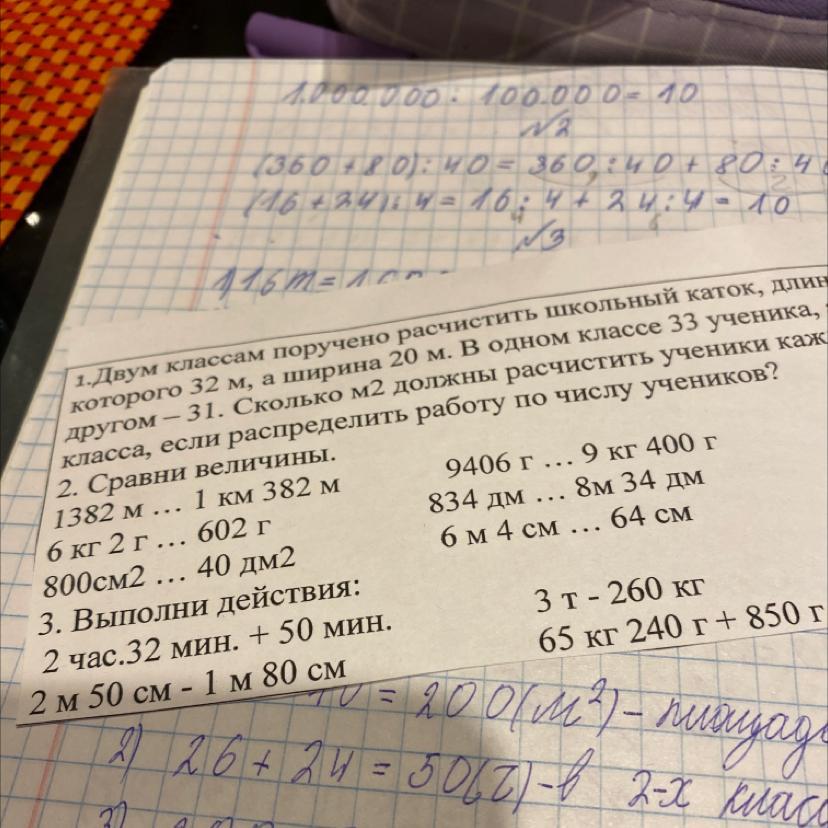 1.000.000 : 100.000 = 10
№2
(360 + 80) : 40 = 360 : 40 + 80 : 4
(16 + 24) : 4 = 16 : 4 + 24 : 4 = 10
№3
1) 16 m =
1.Двум классам поручено расчистить школьный каток, длин
которого 32 м, а ширина 20 м. В одном классе 33 ученика,
другом – 31. Сколько м2 должны расчистить ученики каж
класса, если распределить работу по числу учеников?
2. Сравни величины.
1382 м … 1 км 382 м 9406 г … 9 кг 400 г
6 кг 2 г … 602 г 834 дм … 8м 34 дм
800см2 … 40 дм2 6 м 4 см … 64 см
3. Выполни действия:
2 час.32 мин. + 50 мин. 3 т - 260 кг
2 м 50 см - 1 м 80 см 65 кг 240 г + 850 г
= 200 (м²) – площадь
2) 26 + 24 = 50 (т) – в 2-х класс
3)